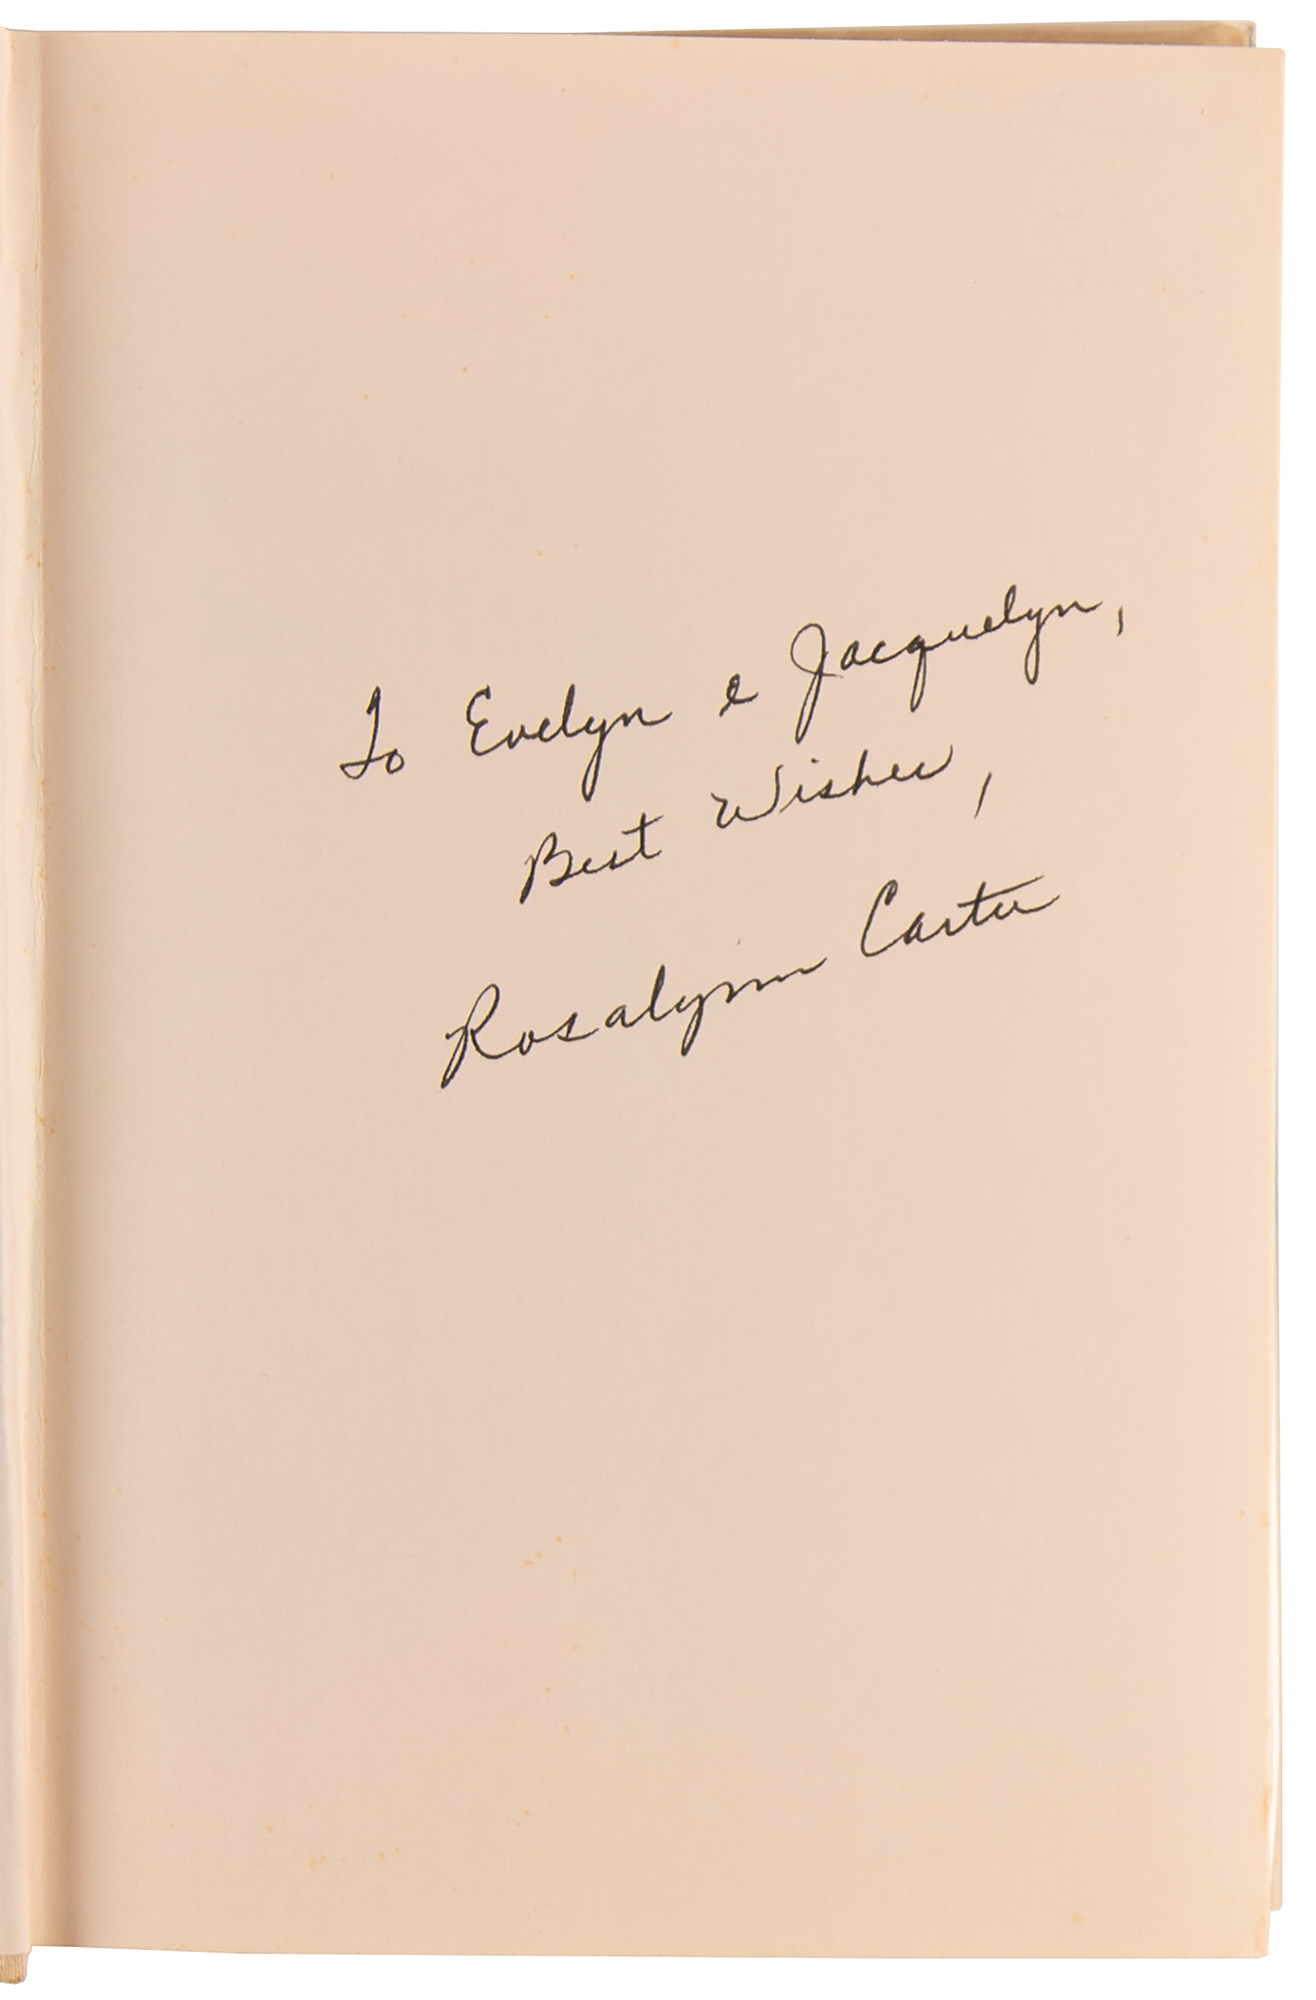 To Evelyn & Jacquelyn,
Best Wishes,
Rosalynn Carter